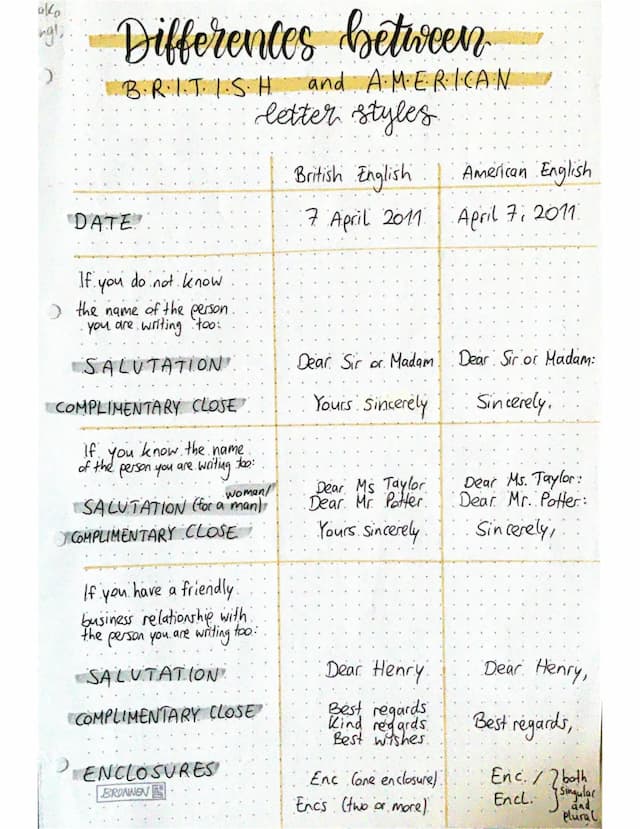 Differences between
B.R.I.T.I.S.H and A.M.E.R.I.C.A.N
letter styles
British English American English
DATE 7 April 2011 April 7, 2011
If you do not know
the name of the person
you are writing too:
SALUTATION Dear Sir or Madam Dear Sir or Madam:
COMPLIMENTARY CLOSE Yours sincerely Sincerely,
If you know the name
of the person you are writing too:
woman/
SALUTATION (for a man) Dear Ms Taylor Dear Ms. Taylor:
Dear Mr Potter Dear Mr. Potter:
COMPLIMENTARY CLOSE Yours sincerely Sincerely,
If you have a friendly
business relationship with
the person you are writing too:
SALUTATION Dear Henry Dear Henry,
COMPLIMENTARY CLOSE Best regards Best regards,
Kind regards
Best wishes
ENCLOSURES Enc (one enclosure) Enc. / both
Encs (two or more) Encl. singular
and
plural